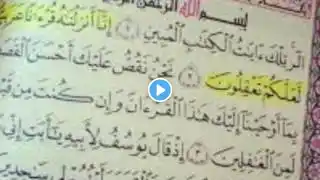 بسم الله الرحمن الر
الر تلك ءايت الكتب المبين ١ إنا أنزلنه قرءنا عربيا
لعلكم تعقلون ٢ نحن نقص عليك أحسن القصص
بما أوحينا إليك هذا القرءان وإن كنت من قبله
لمن الغفلين ٣ إذ قال يوسف لأبيه يأبت إني